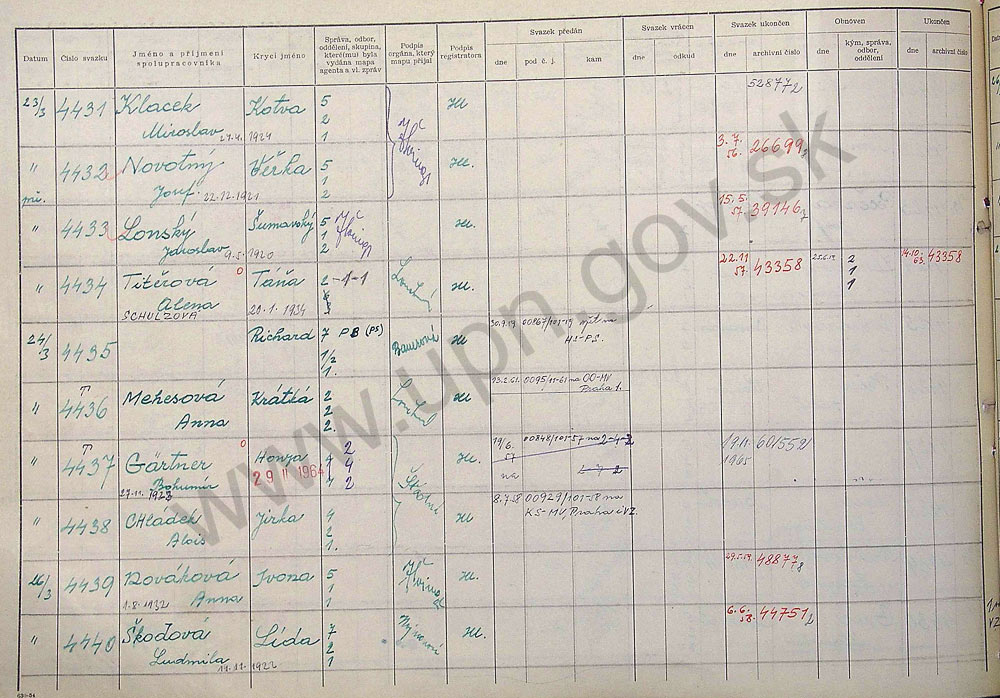 Datum
Číslo svazku
Jméno a příjmení
spolupracovníka
Krycí jméno
Správa, odbor,
oddělení, skupina,
které(mu) byla
vydána mapa
agenta a vl. zpráv
Podpis
orgána, který
mapu přijal
Podpis
registratora
Svazek předán
dne
pod č. j.
kam
Svazek vrácen
dne
odkud
Svazek ukončen
dne
archivní číslo
Obnoven
dne
kým, správa,
odbor,
oddělení
Ukončen
dne
archivní číslo
23/3 4431 Klacek Kotva 5 Hl 52877/2
Miroslav 1924 2
1
" 4432 Novotný Věrka 5 Hl. 3.7. 56. 26699
Josef 22.12.1921 1
2
" 4433 Lonský Šumavský 5 Hl. 15.5. 57. 39146
Jaroslav 9.5.1920 1
2
" 4434 Titěrová Táňa 2-1-1 Hl. 22.11 57. 43358 2 14.10. 63. 43358
Alena 20.1.1934 1
SCHULZOVÁ 1
24/3 4435 Richard 7 PB (PS) Bauerová Hl 00867/101-59 zpět na
1/2 HS-PS.
1.
" T 4436 Mehesová Krátká 2 Hl 0095/101-61 na OO-MV
Anna 2 Praha 1.
2.
" T 4437 Gärtner Honza 4 2 Hl. 19/6. 57 00848/101-57 na 2-4-2 19.11. 1965 60/552
Bohumír 29 II 1964 4
27.11.1923 2 na 2
" 4438 CHládek Jirka 4 Hl 8.7.58 00929/101-58 na
Alois 2 KS-MV, Praha
1.
26/3 4439 Nováková Ivona 5 Hl. 48877
1.8.1932 Anna 1
1
" 4440 Škodová Lída 7 Hl. 6.6. 58. 44751
Ludmila 19.11.1922 2
1
www.upn.gov.sk